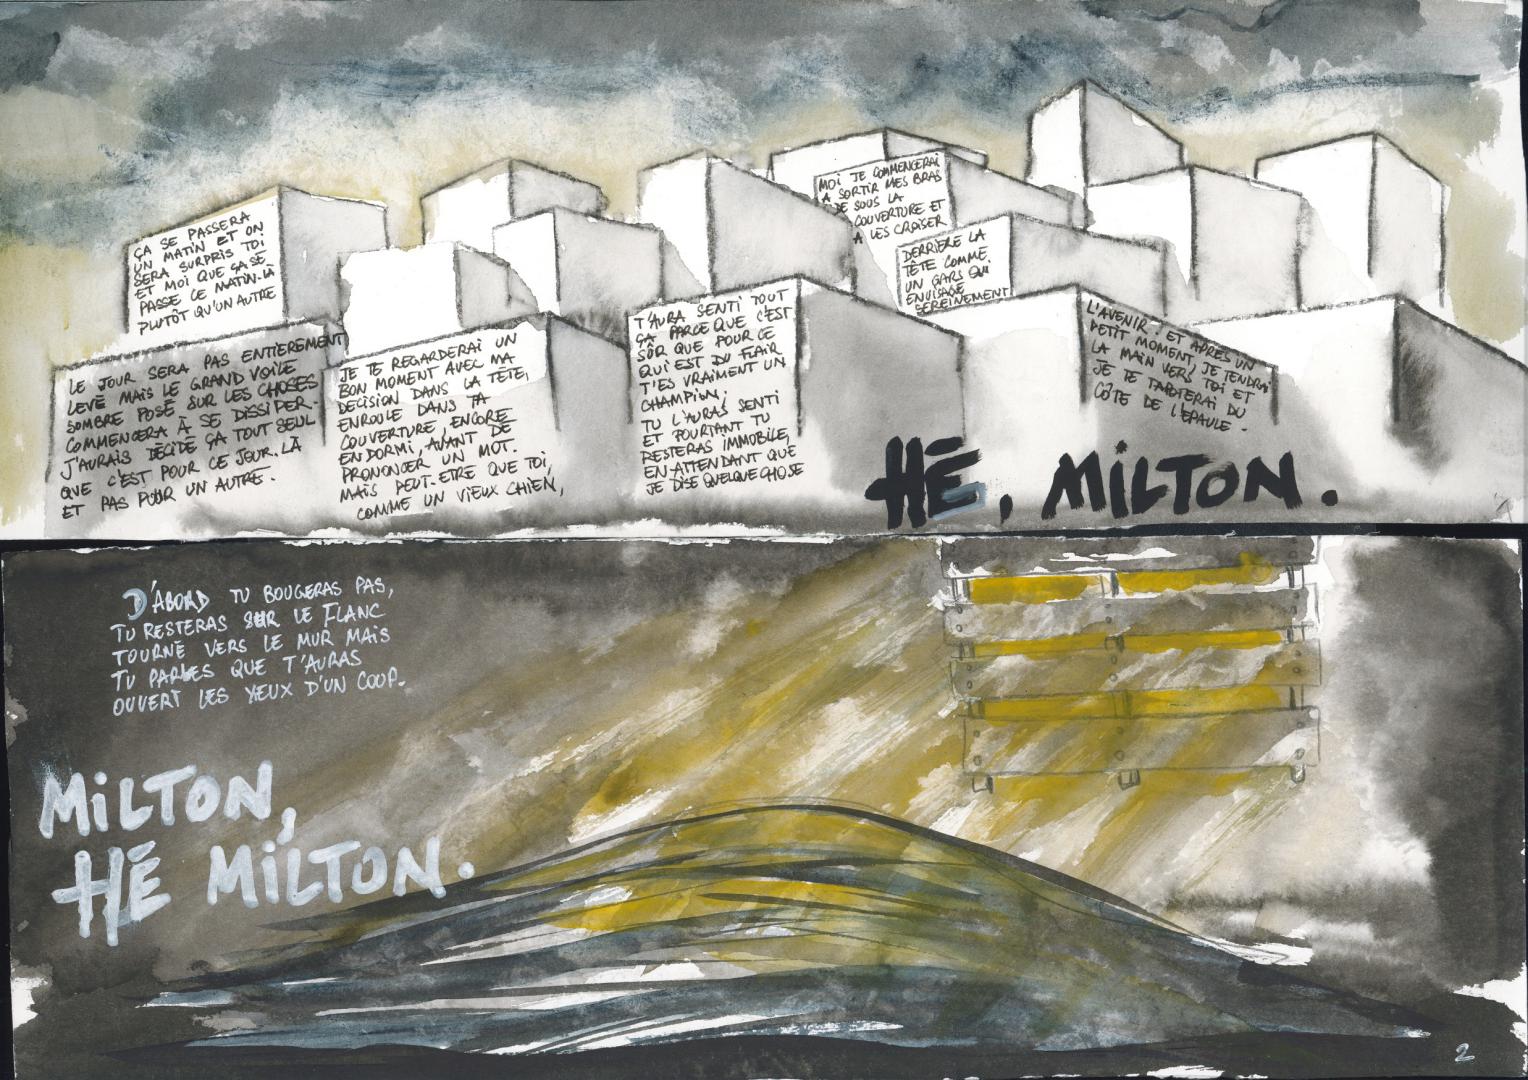 ÇA SE PASSERA
UN MATIN ET ON
SERA SURPRIS TOI
ET MOI QUE ÇA SE
PASSE CE MATIN-LÀ
PLUTÔT QU'UN AUTRE
LE JOUR SERA PAS ENTIEREMENT
LEVÉ MAIS LE GRAND VOILE
SOMBRE POSÉ SUR LES CHOSES
COMMENCERA À SE DISSIPER.
J'AURAIS DÉCIDÉ ÇA TOUT SEUL
QUE C'EST POUR CE JOUR-LÀ
ET PAS POUR UN AUTRE.
JE TE REGARDERAI UN
BON MOMENT AVEC MA
DECISION DANS LA TÊTE,
ENROULÉ DANS TA
COUVERTURE, ENCORE
ENDORMI, AVANT DE
PRONONCER UN MOT.
MAIS PEUT-ETRE QUE TOI,
COMME UN VIEUX CHIEN,
T'AURA SENTI TOUT
ÇA PARCE QUE C'EST
SÛR QUE POUR CE
QUI EST DU FLAIR
T'ES VRAIMENT UN
CHAMPION,
TU L'AURAS SENTI
ET POURTANT TU
RESTERAS IMMOBILE,
EN ATTENDANT QUE
JE DISE QUELQUE CHOSE
MOI JE COMMENCERAI
A SORTIR MES BRAS
DE SOUS LA
COUVERTURE ET
A LES CROISER
DERRIÈRE LA
TÊTE COMME
UN GARS QUI
ENVISAGE
SEREINEMENT
L'AVENIR. ET APRÈS UN
PETIT MOMENT, JE TENDRAI
LA MAIN VERS TOI ET
JE TE TAPOTERAI DU
CÔTE DE L'EPAULE.
HÉ, MILTON.
D'ABORD TU BOUGERAS PAS,
TU RESTERAS SUR LE FLANC
TOURNÉ VERS LE MUR MAIS
TU PARLES QUE T'AURAS
OUVERT LES YEUX D'UN COUP.
MILTON,
HÉ MILTON.
2